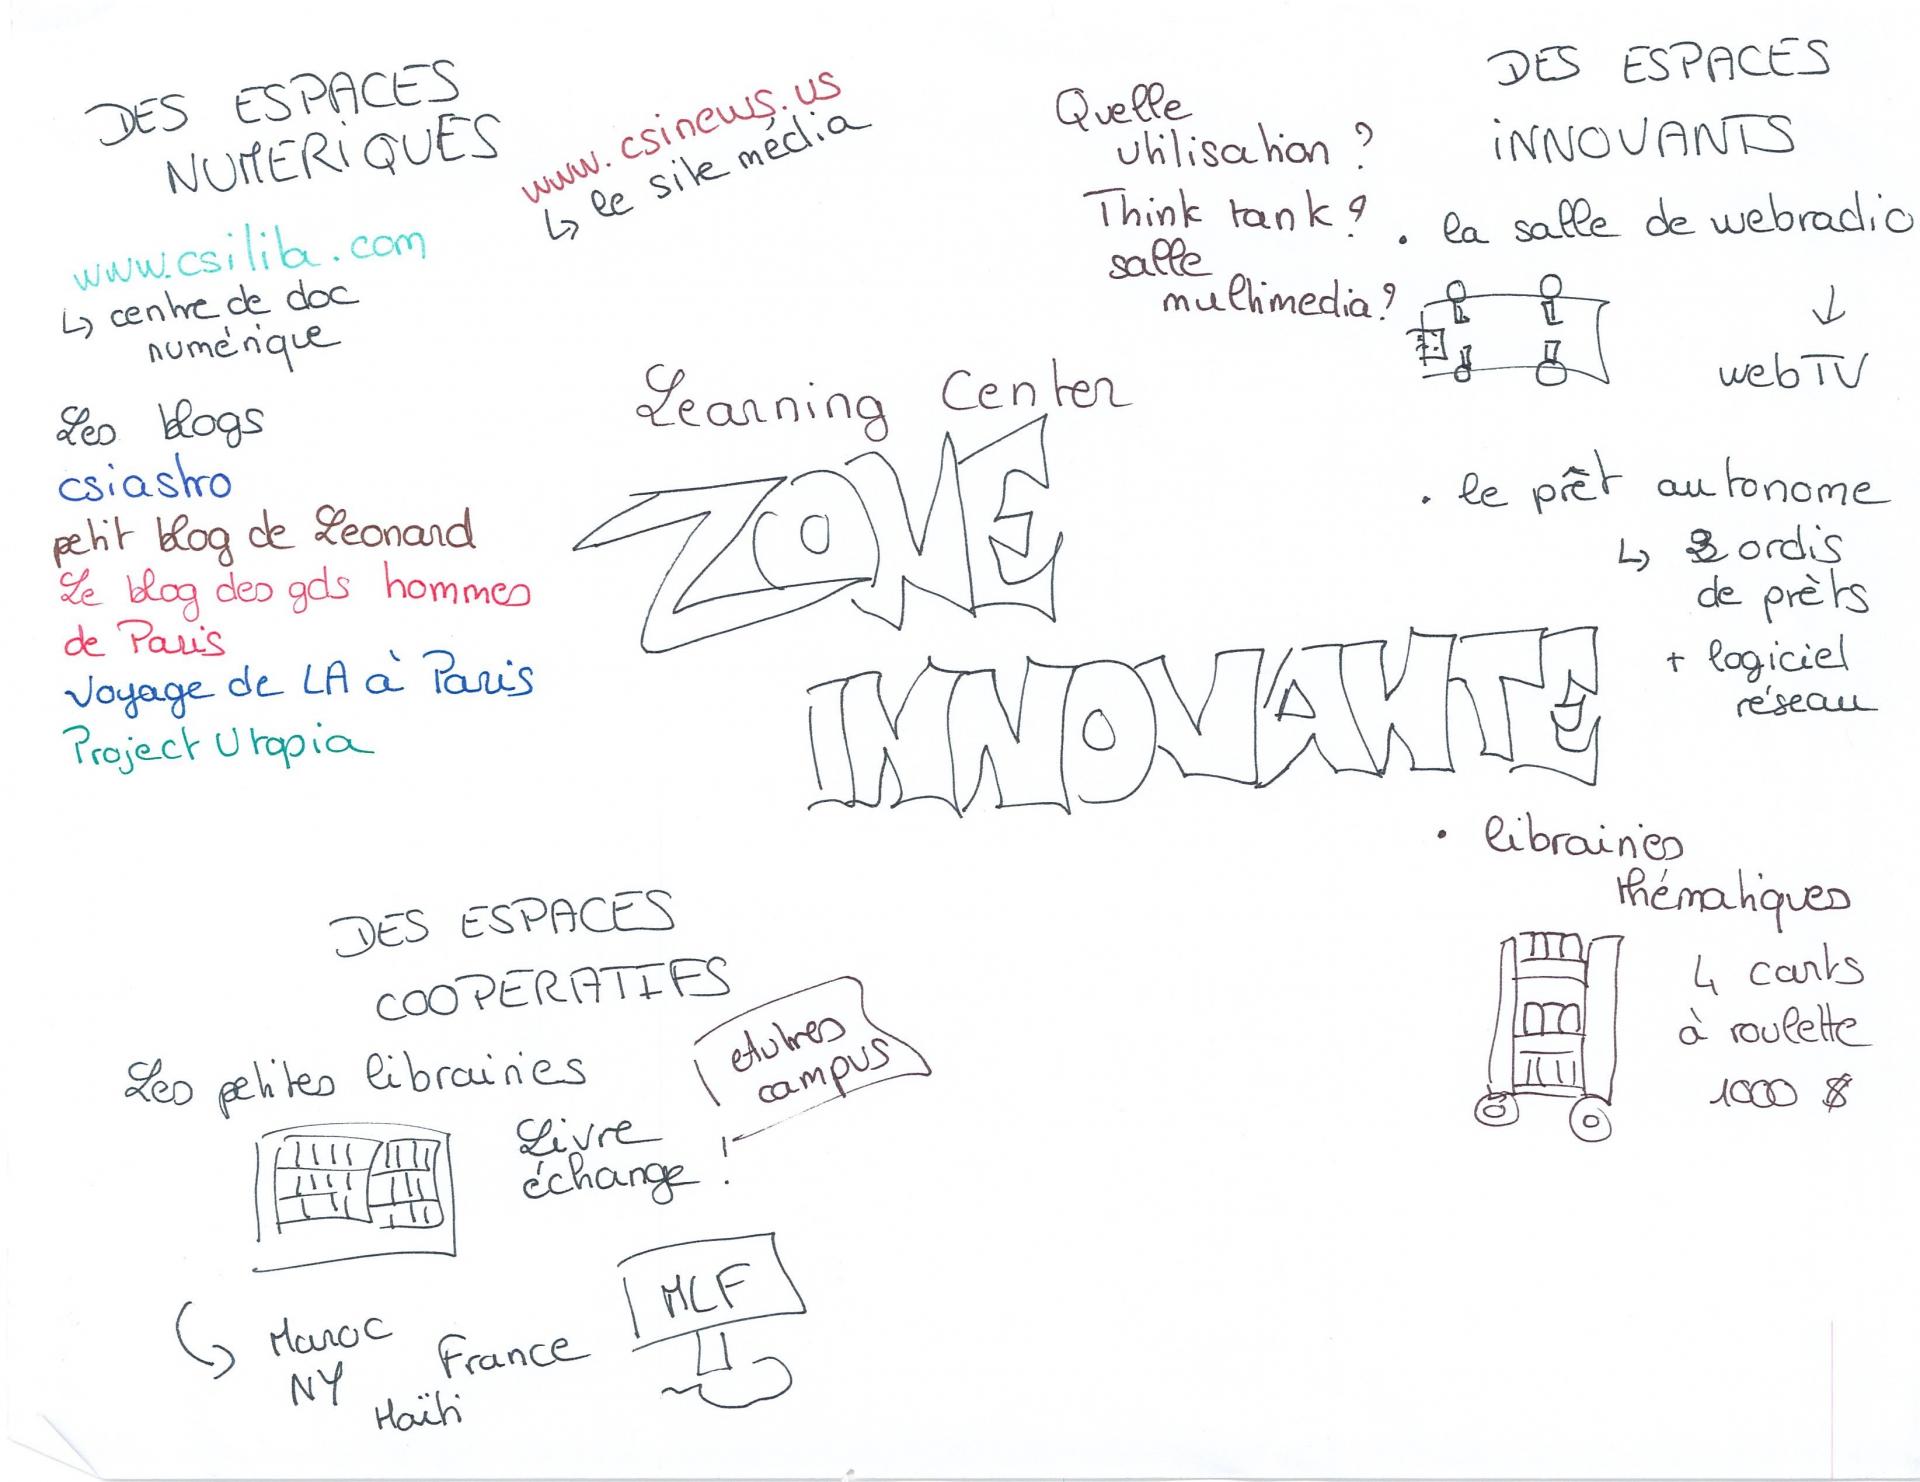 DES ESPACES
NUMERiQUES
www.csinews.us
↳ le site média
www.csiliba.com
↳ centre de doc
numérique
Les blogs
csiastro
petit blog de Leonard
Le blog des gds hommes
de Paris
Voyage de LA à Paris
Project Utopia
Learning Center
ZONE
INNOVANTE
DES ESPACES
iNNOVANTS
Quelle
utilisation ?
Think tank ?
salle
multimedia ?
• la salle de webradio
↓
webTV
• le prêt autonome
↳ ordis
de prèts
+ logiciel
réseau
• librairies
thématiques
4 carts
à roulette
1000 $
DES ESPACES
COOPERATIFS
Les petites librairies
Livre
échange !
campus
MLF
Maroc
NY
France
Haïti